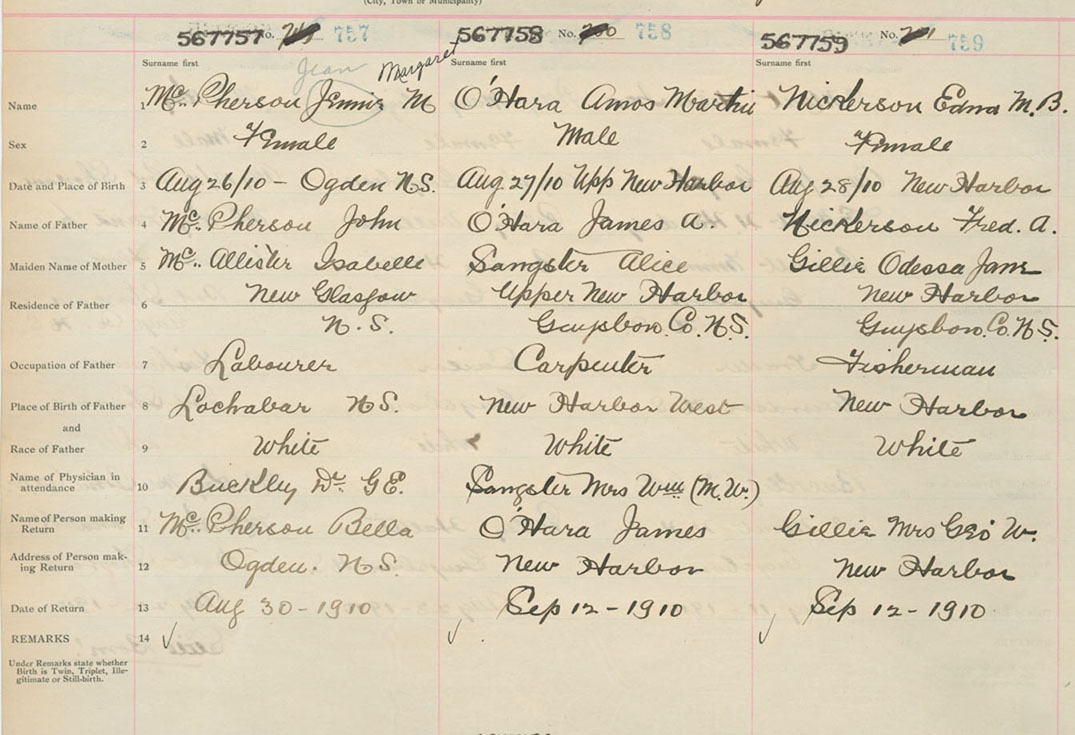 (City, Town or Municipality)
567757 No. 757
567758 No. 758
567759 No. 759
Surname first Jean Margaret
Surname first
Surname first
Name 1 Mc. Pherson Jennie M
O'Hara Amos Martin
Nickerson Edna M. B.
Sex 2 Female
Male
Female
Date and Place of Birth 3 Aug 26/10 - Ogden N.S.
Aug. 27/10 Upp New Harbor
Aug 28/10 New Harbor
Name of Father 4 Mc. Pherson John
O'Hara James A.
Nickerson Fred. A.
Maiden Name of Mother 5 Mc. Allister Isabelle
Sangster Alice
Gillie Odessa Jane
Residence of Father 6 New Glasgow
N.S.
Upper New Harbor
Guysboro. Co. N.S.
New Harbor
Guysboro. Co. N.S.
Occupation of Father 7 Labourer
Carpenter
Fisherman
Place of Birth of Father 8 Lochabar N.S.
New Harbor West
New Harbor
and
Race of Father 9 White
White
White
Name of Physician in
attendance 10 Buckley Dr. G.E.
Sangster Mrs Wm (M.W.)
Name of Person making
Return 11 Mc. Pherson Bella
O'Hara James
Gillie Mrs Geo W.
Address of Person mak-
ing Return 12 Ogden. N.S.
New Harbor
New Harbor
Date of Return 13 Aug 30-1910
Sep 12-1910
Sep 12-1910
REMARKS 14
Under Remarks state whether
Birth is Twin, Triplet, Ille-
gitimate or Still-birth.